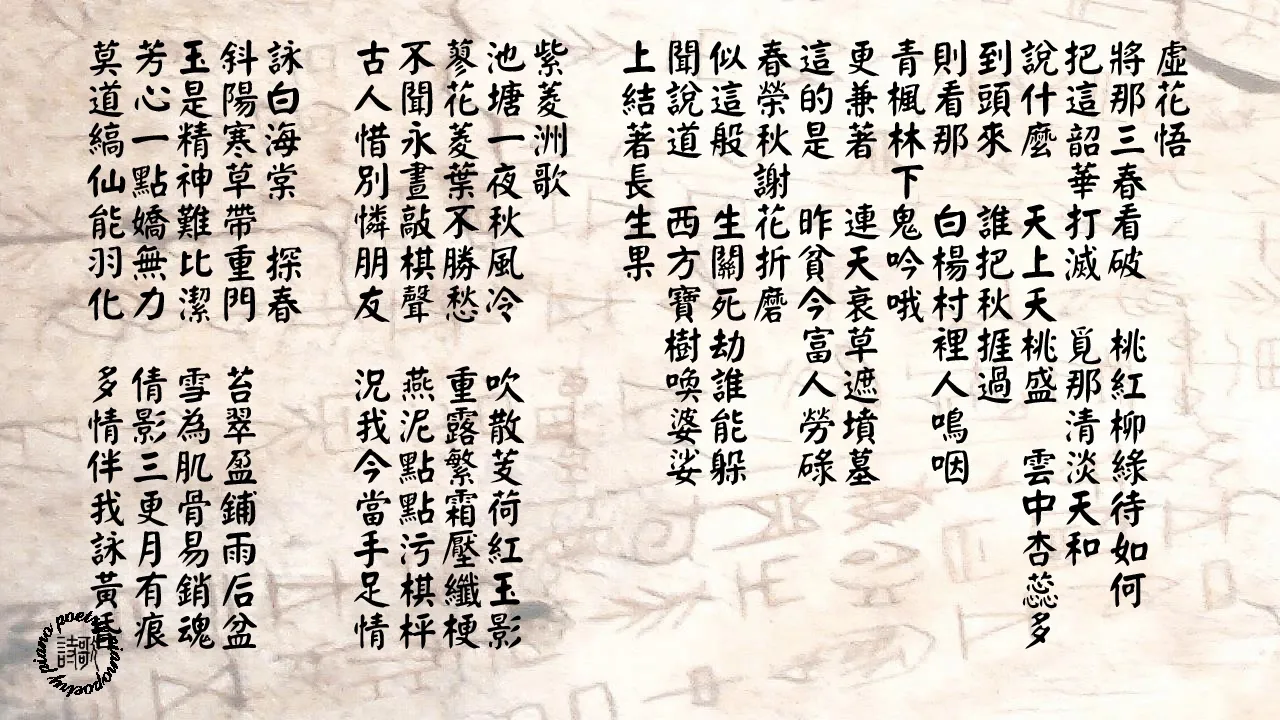 虛花悟
將那三春看破　桃紅柳綠待如何
把這韶華打滅　覓那清淡天和
說什麼　天上夭桃盛　雲中杏蕊多
到頭來　誰把秋捱過
則看那　白楊村裡人鳴咽
青楓林下鬼吟哦
更兼著　連天衰草遮墳墓
這的是　昨貧今富人勞碌
春榮秋謝花折磨
似這般　生關死劫誰能躲
聞說道　西方寶樹喚婆娑
上結著長生果
紫菱洲歌
池塘一夜秋風冷　吹散芰荷紅玉影
蓼花菱葉不勝愁　重露繁霜壓纖梗
不聞永晝敲棋聲　燕泥點點污棋枰
古人惜別憐朋友　況我今當手足情
詠白海棠　探春
斜陽寒草帶重門　苔翠盈鋪雨后盆
玉是精神難比潔　雪為肌骨易銷魂
芳心一點嬌無力　倩影三更月有痕
莫道縞仙能羽化　多情伴我詠黃昏
piano poetry pianopoetry
詩歌